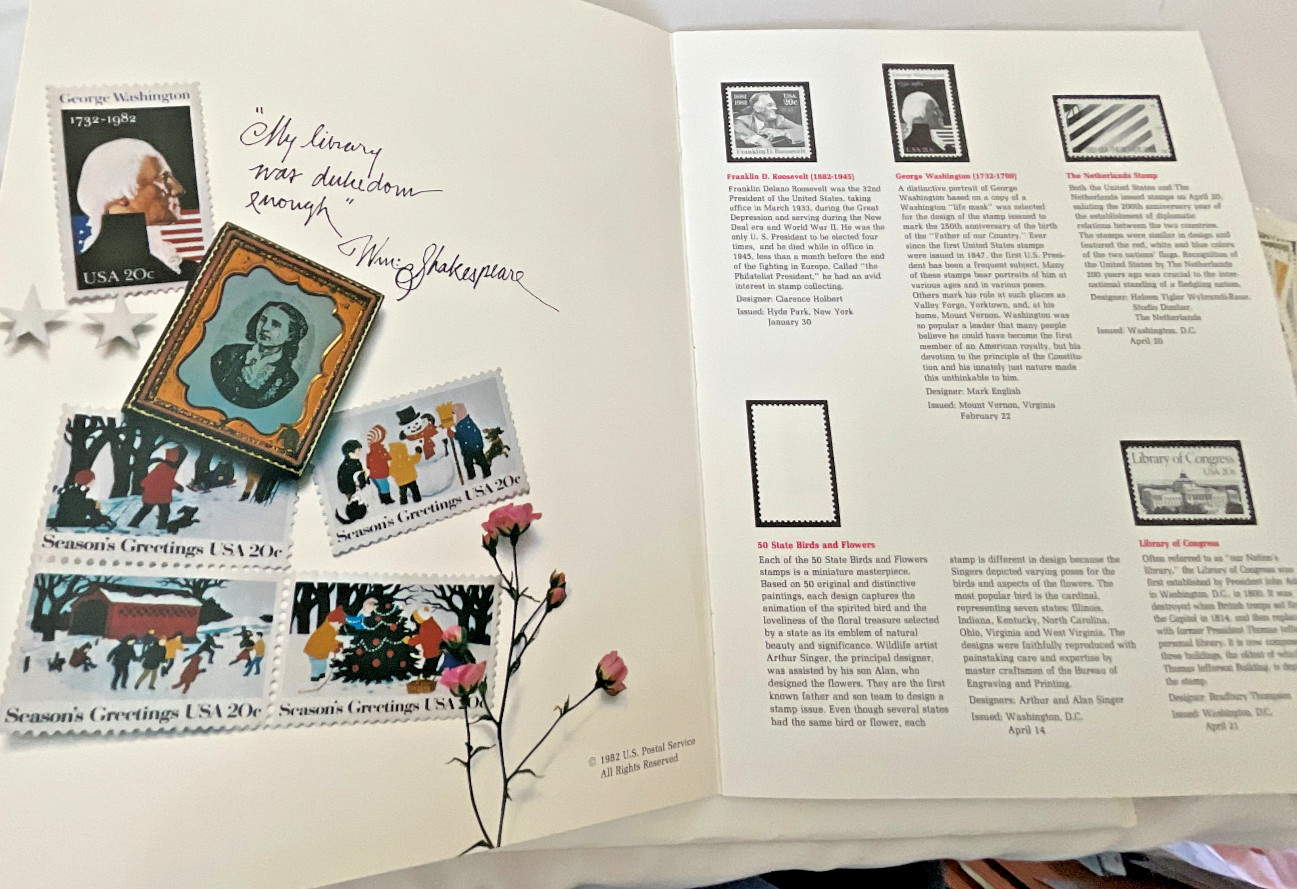 George Washington
1732-1982
USA 20c
"My library
was dukedom
enough"
Wm: Shakespeare
Season's Greetings USA 20c
Season's Greetings USA 20c
Season's Greetings USA 20c
Season's Greetings USA 20c
© 1982 U.S. Postal Service
All Rights Reserved
1882
1982
USA
20c
Franklin D. Roosevelt
Franklin D. Roosevelt (1882-1945)
Franklin Delano Roosevelt was the 32nd
President of the United States, taking
office in March 1933, during the Great
Depression and serving during the New
Deal era and World War II. He was the
only U. S. President to be elected four
times, and he died while in office in
1945, less than a month before the end
of the fighting in Europe. Called "the
Philatelist President," he had an avid
interest in stamp collecting.
Designer: Clarence Holbert
Issued: Hyde Park, New York
January 30
George Washington
1732-1982
USA 20c
George Washington (1732-1799)
A distinctive portrait of George
Washington based on a copy of a
Washington "life mask" was selected
for the design of the stamp issued to
mark the 250th anniversary of the birth
of the "Father of our Country." Ever
since the first United States stamps
were issued in 1847, the first U.S. Presi-
dent has been a frequent subject. Many
of these stamps bear portraits of him at
various ages and in various poses.
Others mark his role at such places as
Valley Forge, Yorktown, and, at his
home, Mount Vernon. Washington was
so popular a leader that many people
believe he could have become the first
member of an American royalty, but his
devotion to the principle of the Constitu-
tion and his innately just nature made
this unthinkable to him.
Designer: Mark English
Issued: Mount Vernon, Virginia
February 22
The Netherlands Stamp
Both the United States and The
Netherlands issued stamps on April 20,
saluting the 200th anniversary year of
the establishment of diplomatic
relations between the two countries.
The stamps were similar in design and
featured the red, white and blue colors
of the two nations' flags. Recognition of
the United States by The Netherlands
200 years ago was crucial to the inter-
national standing of a fledgling nation.
Designer: Heleen Tigler Wybrandi-Raue,
Studio Dumbar,
The Netherlands
Issued: Washington, D.C.
April 20
50 State Birds and Flowers
Each of the 50 State Birds and Flowers
stamps is a miniature masterpiece.
Based on 50 original and distinctive
paintings, each design captures the
animation of the spirited bird and the
loveliness of the floral treasure selected
by a state as its emblem of natural
beauty and significance. Wildlife artist
Arthur Singer, the principal designer,
was assisted by his son Alan, who
designed the flowers. They are the first
known father and son team to design a
stamp issue. Even though several states
had the same bird or flower, each
stamp is different in design because the
Singers depicted varying poses for the
birds and aspects of the flowers. The
most popular bird is the cardinal,
representing seven states: Illinois,
Indiana, Kentucky, North Carolina,
Ohio, Virginia and West Virginia. The
designs were faithfully reproduced with
painstaking care and expertise by
master craftsmen of the Bureau of
Engraving and Printing.
Designers: Arthur and Alan Singer
Issued: Washington, D.C.
April 14
Library of Congress
USA 20c
Library of Congress
Often referred to as "our Nation's
library," the Library of Congress was
first established by President John
in Washington, D.C. in 1800. It was
destroyed when British troops set
the Capitol in 1814, and then
with former President Thomas
personal library. It is now
three buildings, the oldest of which
Thomas Jefferson Building, is
the stamp.
Designer: Bradbury Thompson
Issued: Washington, D.C.
April 21